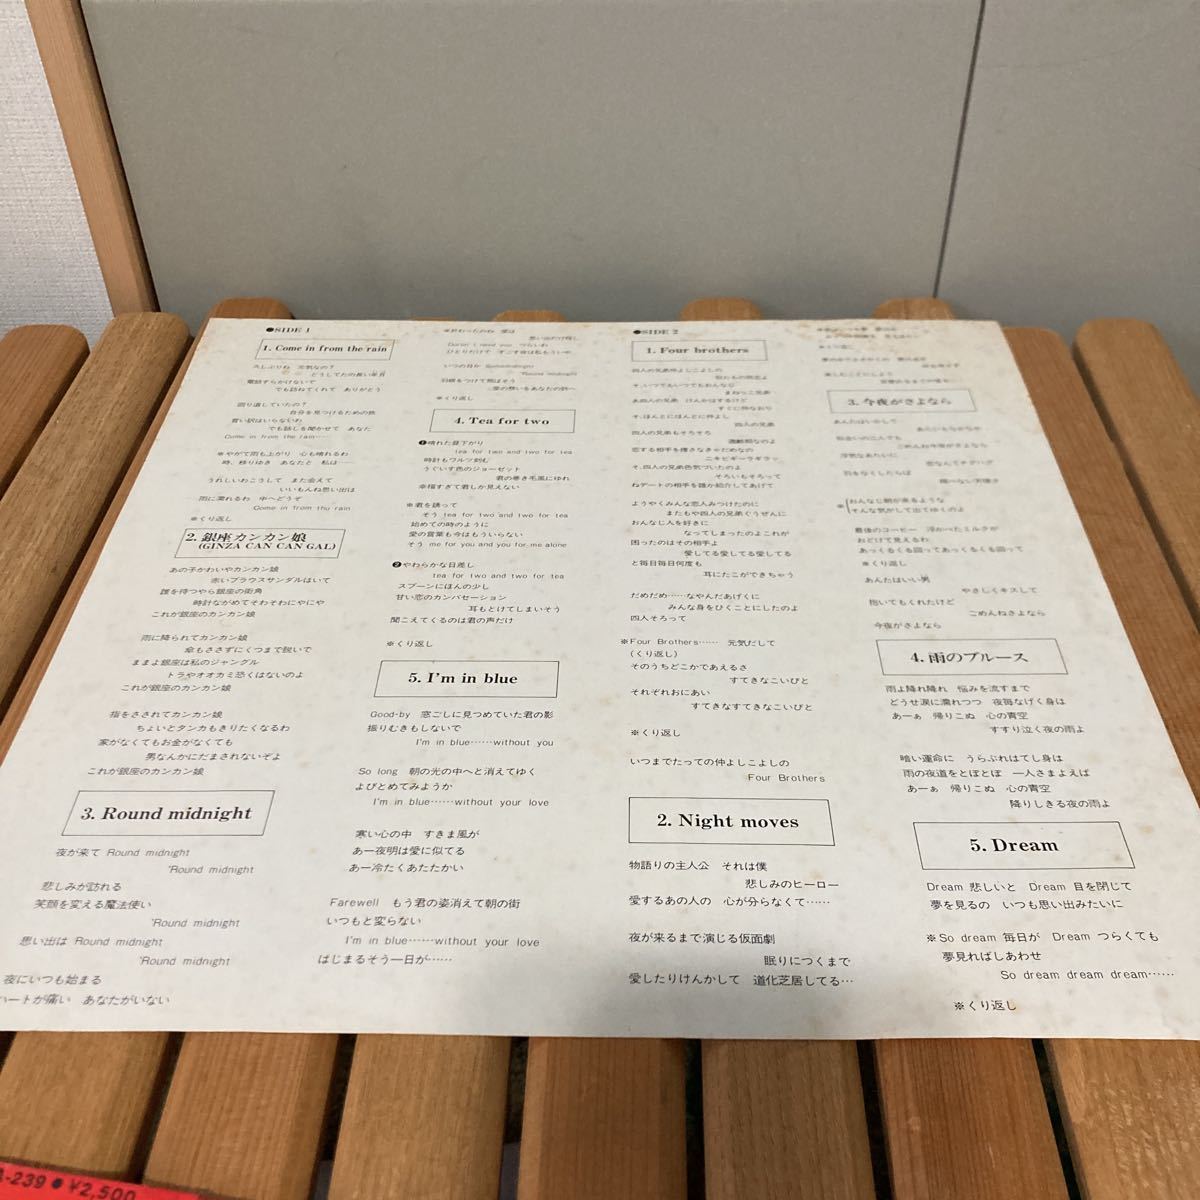 ●SIDE 1
1. Come in from the rain
久しぶりね 元気なの?
どうしてたの長い年月
電話すらかけないで
でも訪ねてくれて ありがとう
回り道していたの?
自分を見つけるための旅
言い訳はいらないわ
でも話しを聞かせて あなた
Come in from the rain……
※やがて雨も上がり 心も晴れるわ
時、移りゆき あなたと 私は……
うれしいわこうして また会えて
いいもんね思い出は
雨に濡れるわ 中へどうぞ
Come in from thu rain
※くり返し
2. 銀座カンカン娘
(GINZA CAN CAN GAL)
あの子かわいやカンカン娘
赤いブラウスサンダルはいて
誰を待つやら銀座の街角
時計ながめてそわそわにやにや
これが銀座のカンカン娘
雨に降られてカンカン娘
傘もささずにくつまで脱いで
ままよ銀座は私のジャングル
トラやオオカミ恐くはないのよ
これが銀座のカンカン娘
指をさされてカンカン娘
ちょいとタンカもきりたくなるわ
家がなくてもお金がなくても
男なんかにだまされないぞよ
これが銀座のカンカン娘
3. Round midnight
夜が来て Round midnight
'Round midnight
悲しみが訪れる
笑顔を変える魔法使い
'Round midnight
思い出は Round midnight
'Round midnight
夜にいつも始まる
ハートが痛い あなたがいない
※終わったのね 愛は
思い出だけ残し
Durlin' I need you つらいわ
ひとりだけで すごす夜は私もういや
いつの日か
'Round midnight
羽根をつけて飛ばそう
この想いをあなたの許へ
※くり返し
4. Tea for two
❶晴れた昼下がり
tea for two and two for tea
時計もワルツ刻む
うぐいす色のジョーゼット
君の巻き毛風にゆれ
幸福すぎて君しか見えない
※君を誘って
そう tea for two and two for tea
始めての時のように
愛の言葉も今はもういらない
そう me for you and you for me alone
❷やわらかな日差し
tea for two and two for tea
スプーンにほんの少し
甘い恋のカンバセーション
耳もとけてしまいそう
聞こえてくるのは君の声だけ
※くり返し
5. I'm in blue
Good-by 窓ごしに見つめていた君の影
振りむきもしないで
I'm in blue……without you
So long 朝の光の中へと消えてゆく
よびとめてみようか
I'm in blue……without your love
寒い心の中 すきま風が
あー夜明は愛に似てる
あー冷たくあたたかい
Farewell もう君の姿消えて朝の街
いつもと変らない
I'm in blue……without your love
はじまるそう一日が……
●SIDE 2
1. Four brothers
四人の兄弟仲よしこよしの
そ、いつでもいつでもおんなじ
まねっこ兄弟
あ四人の兄弟 けんかはするけど
すぐに仲なおり
そ、ほんとにほんとに仲よし
四人の兄弟
四人の兄弟もそろそろ
適齢期なのよ
恋する相手を捜さなきゃだめなの
ニキビギーラギラッ
そ、四人の兄弟色気づいたのよ
そろいもそろって
ねデートの相手を誰か紹介してあげて
ようやくみんな恋人みつけたのに
またもや四人の兄弟ぐうぜんに
おんなじ人を好きに
なってしまったのよこれが
困ったのはその相手よ
愛してる愛してる愛してる
と毎日毎日何度も
耳にたこができちゃう
だめだめ……なやんだあげくに
みんな身をひくことにしたのよ
四人そろって
※Four Brothers…… 元気だして
(くり返し)
そのうちどこかであえるさ
すてきなこいびと
それぞれおにあい
すてきなすてきなこいびと
※くり返し
いつまでたっての仲よしこよしの
Four Brothers
2. Night moves
物語りの主人公 それは僕
悲しみのヒーロー
愛するあの人の 心が分らなくて……
夜が来るまで演じる仮面劇
眠りにつくまで
愛したりけんかして 道化芝居してる…
※くり返し
3. 今夜がさよなら
あんたはいかして
似合いの二人でも
こめんね今夜がさよなら
浮気なあたいに
恋なんてチグハグ
※おんなじ朝が来るような
そんな気がして出てゆくの
最後のコーヒー 浮かべたミルクが
おどけて見えるわ
あっくるくる回ってあっくるくる回って
※くり返し
あんたはいい男
やさしくキスして
抱いてもくれたけど
ごめんねさよなら
今夜がさよなら
4. 雨のブルース
雨よ降れ降れ 悩みを流すまで
どうせ涙に濡れつつ 夜毎なげく身は
あーぁ 帰りこぬ 心の青空
すすり泣く夜の雨よ
暗い運命に うらぶれはてし身は
雨の夜道をとぼとぼ 一人さまよえば
あーぁ 帰りこぬ 心の青空
降りしきる夜の雨よ
5. Dream
Dream 悲しいと Dream 目を閉じて
夢を見るの いつも思い出みたいに
※So dream 毎日が Dream つらくても
夢見ればしあわせ
So dream dream dream……
※くり返し
-239 ● ¥2,500